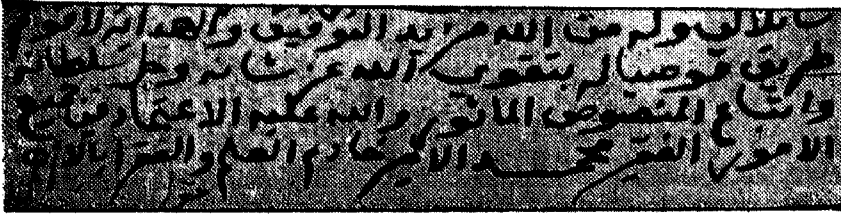 سائلا لي وله من الله مزيد التوفيق والهداية لاقوم
طريق موصيا له بتقوى الله عز شانه وجل سلطانه
واتباع المنصوص المأثور والله عليه الاعتماد في جميع
الامور الفقير محمد الامير خادم العلم والفقرا بالازهر